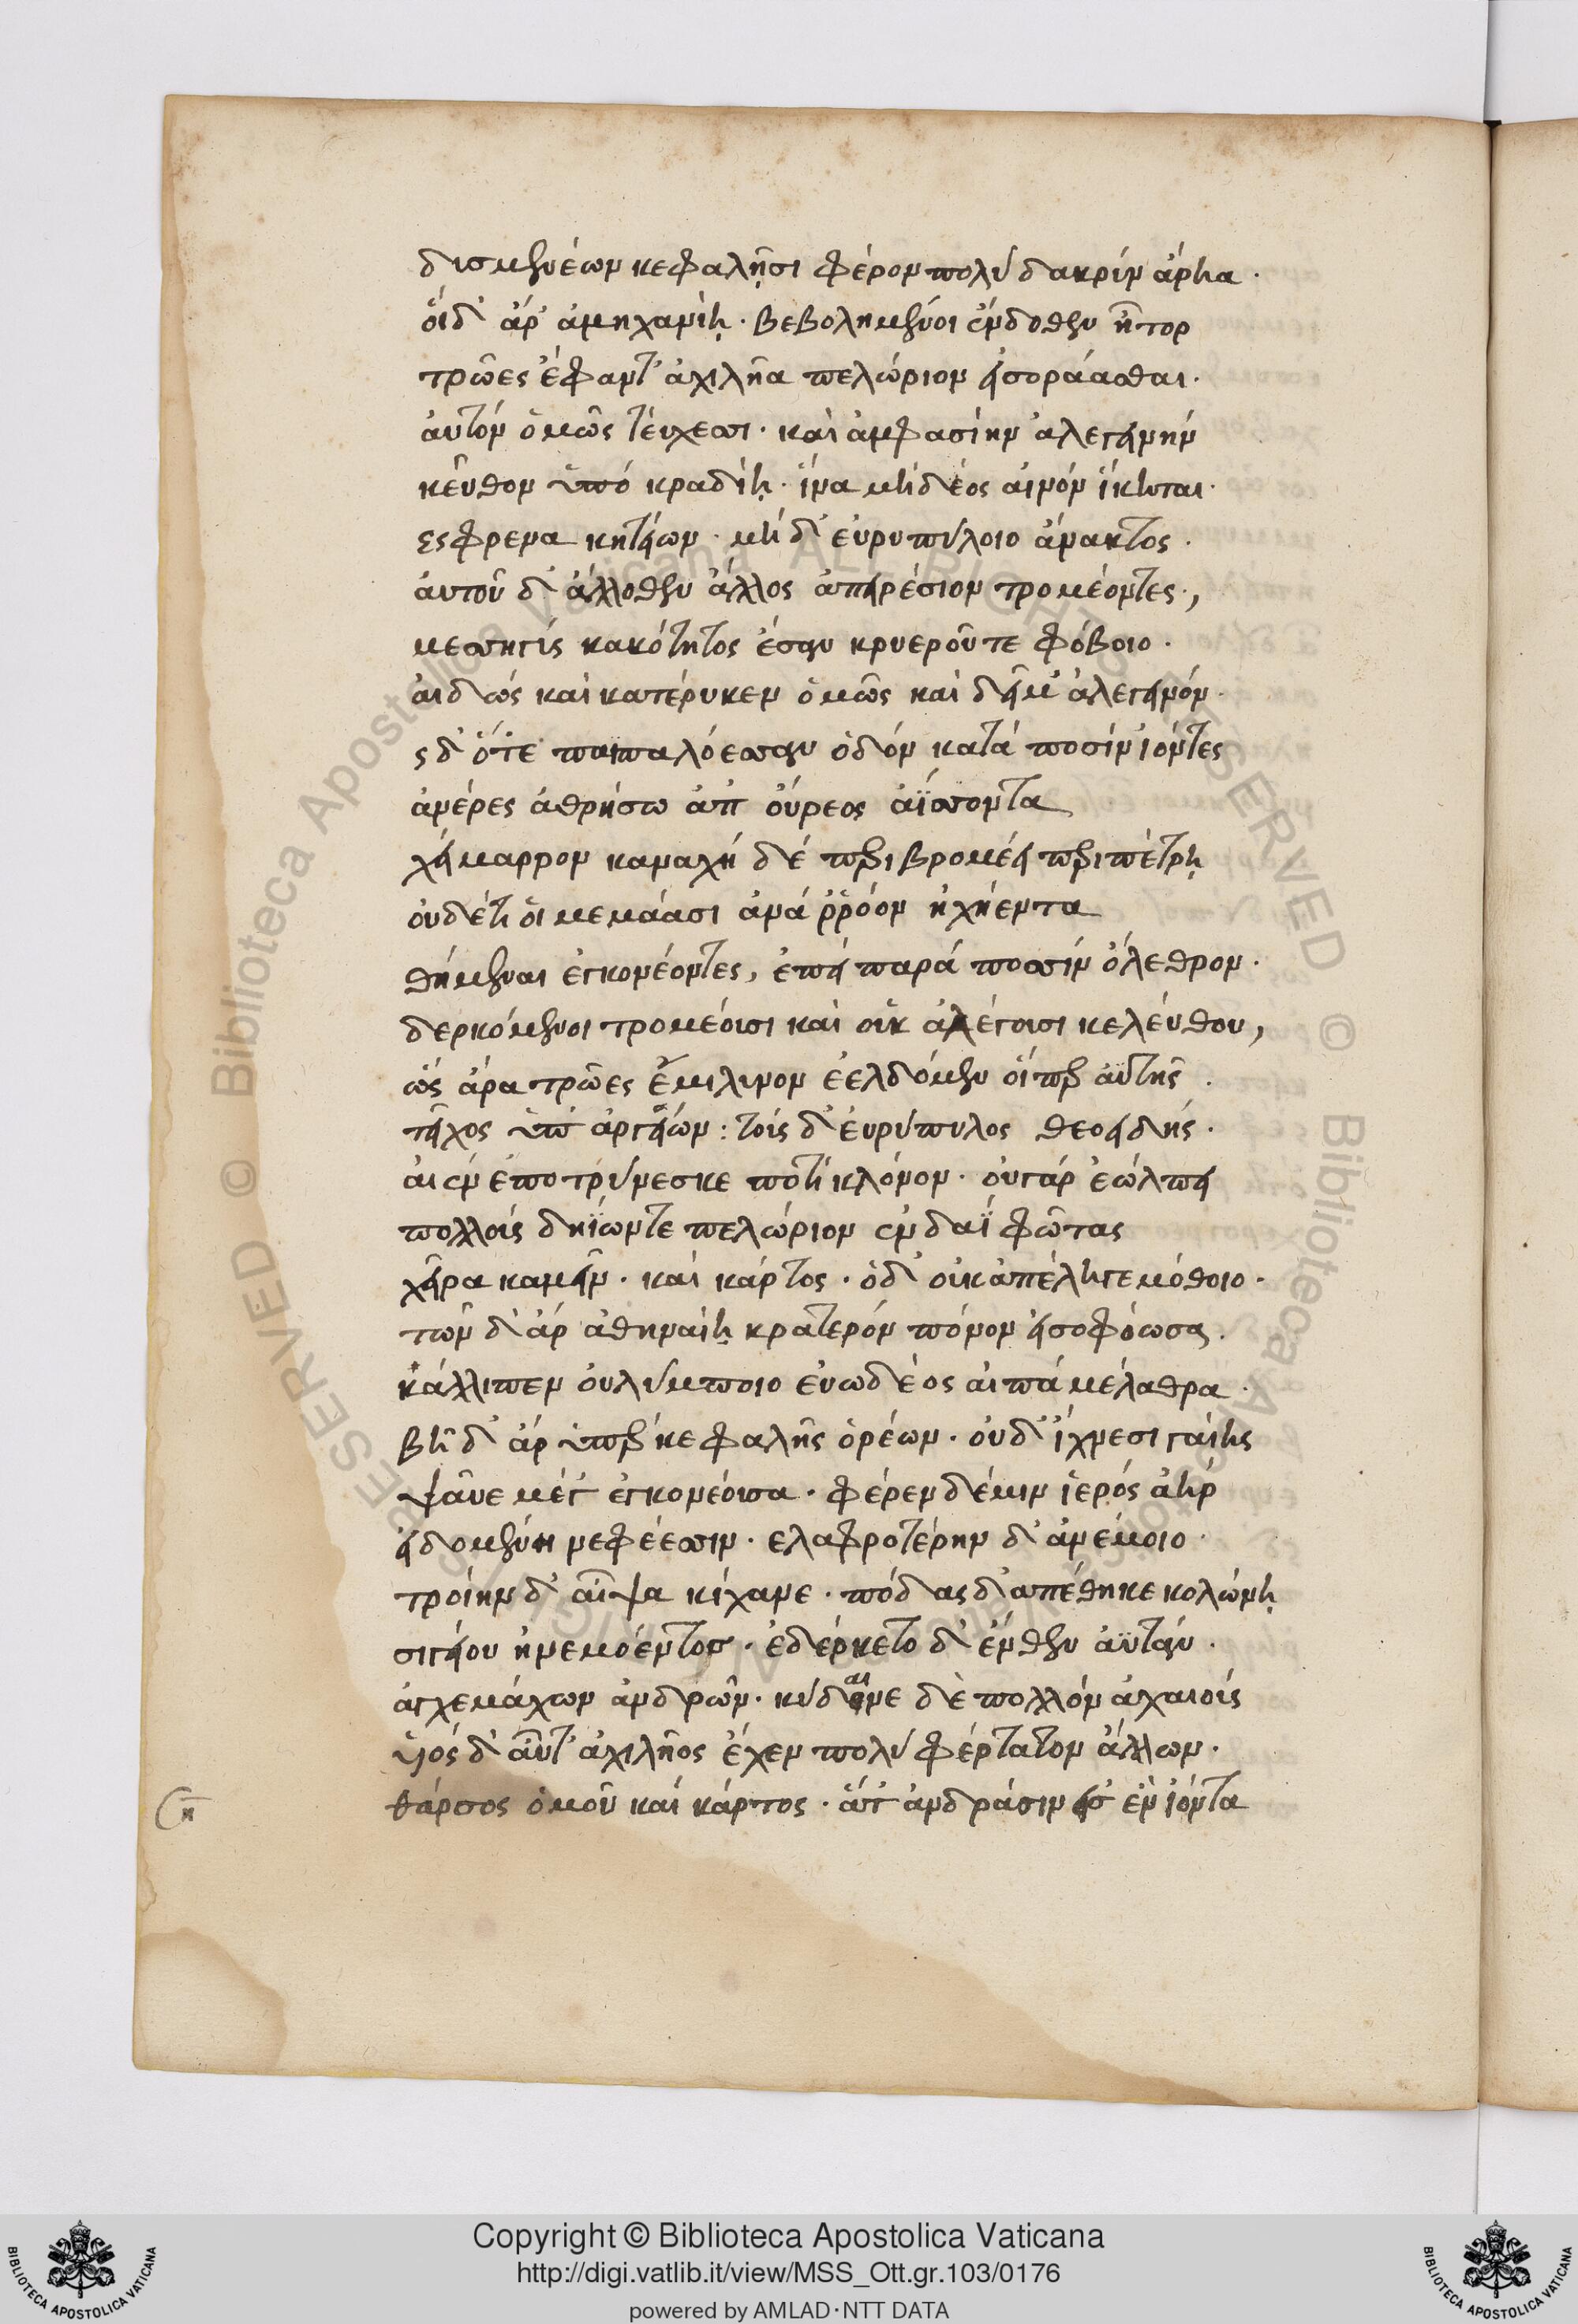 δυσμενέων κεφαλῇσι φέρον πολύδακρυν ἄρηα.
οἱ δ' ἄρ' ἀμηχανίῃ. βεβολημένοι ἔνδοθεν ἦτορ
τρῶες ἔφαντ' ἀχιλῆα πελώριον εἰσοράασθαι.
αὐτὸν ὁμῶς τεύχεσι. καὶ ἀμφασίην ἀλεγεινὴν
κεῦθον ὑπὸ κραδίῃ. ἵνα μὴ δέος αἰνὸν ἵκηται.
ἐς φρένα κητείων. μὴ δ' εὐρυπύλοιο ἄνακτος.
αὐτοῦ δ' ἄλλοθεν ἄλλος ἀπειρέσιον τρομέοντες,
μεσσηγὺς κακότητος ἔσαν κρυεροῦ τε φόβοιο.
αἰδὼς καὶ κατέρυκεν ὁμῶς καὶ δεῖμ' ἀλεγεινόν.
ς δ' ὅτε παιπαλόεσσαν ὁδὸν κατὰ ποσὶν ἰόντες
ἀνέρες ἀθρήσω ἀπ' οὔρεος ἀΐσσοντα
χείμαρρον καναχὴ δὲ περιβρομέει περὶ πέτρῃ
οὐδέτι οἱ μεμάασι ἀνὰ ῥρόον ἠχήεντα
θήμεναι ἐγκονέοντες, ἐπεὶ παρὰ ποσσὶν ὄλεθρον.
δερκόμενοι τρομέουσι καὶ οὐκ ἀλέγουσι κελεύθου,
ὣς ἄρα τρῶες ἔμιμνον ἐελδόμεν οἵπερ ἀϋτῆς.
τεῖχος ὑπ' ἀργείων: τοὺς δ' εὐρύπυλος θεοειδής.
αἰὲν ἐποτρύνεσκε ποτὶ κλόνον. οὐ γὰρ ἐώλπει
πολλοὺς δηϊώντε πελώριον ἐν δαῒ φῶτας
χεῖρα καμεῖν. καὶ κάρτος. ὁ δ' οὐκ ἀπέληγε μόθοιο.
τῶν δ' ἄρ ἀθηναίη κρατερὸν πόνον εἰσοφόωσα.
κάλλιπεν οὐλύμποιο εὐωδέος αἰπὰ μέλαθρα.
βῆ δ' ἄρ ὑπὲρ κεφαλῆς ὀρέων. οὐδ' ἴχνεσι γαίης
ψαῦε μέγ' ἐγκονέουσα. φέρεν δέ μιν ἱερὸς ἀὴρ
εἰδομένη νεφέεσσιν. ελαφροτέρην δ' ἀνέμοιο.
τροίην δ' αἶψα κίχανε. πόδας δ' ἀπέθηκε κολώνῃ
σιγείου ἠνεμόεντος. ἐδέρκετο δ' ἔνθεν ἀϋτὰν.
ἀγχεμάχων ἀνδρῶν. κύδαινε δὲ πολλὸν ἀχαιοὺς
υἱὸς δ' αὖτ' ἀχιλῆος ἔχεν πολὺ φέρτατον ἄλλων.
θάρσος ὁμοῦ καὶ κάρτος. ἅτ' ἀνδράσιν εἰς ἓν ἰόντα